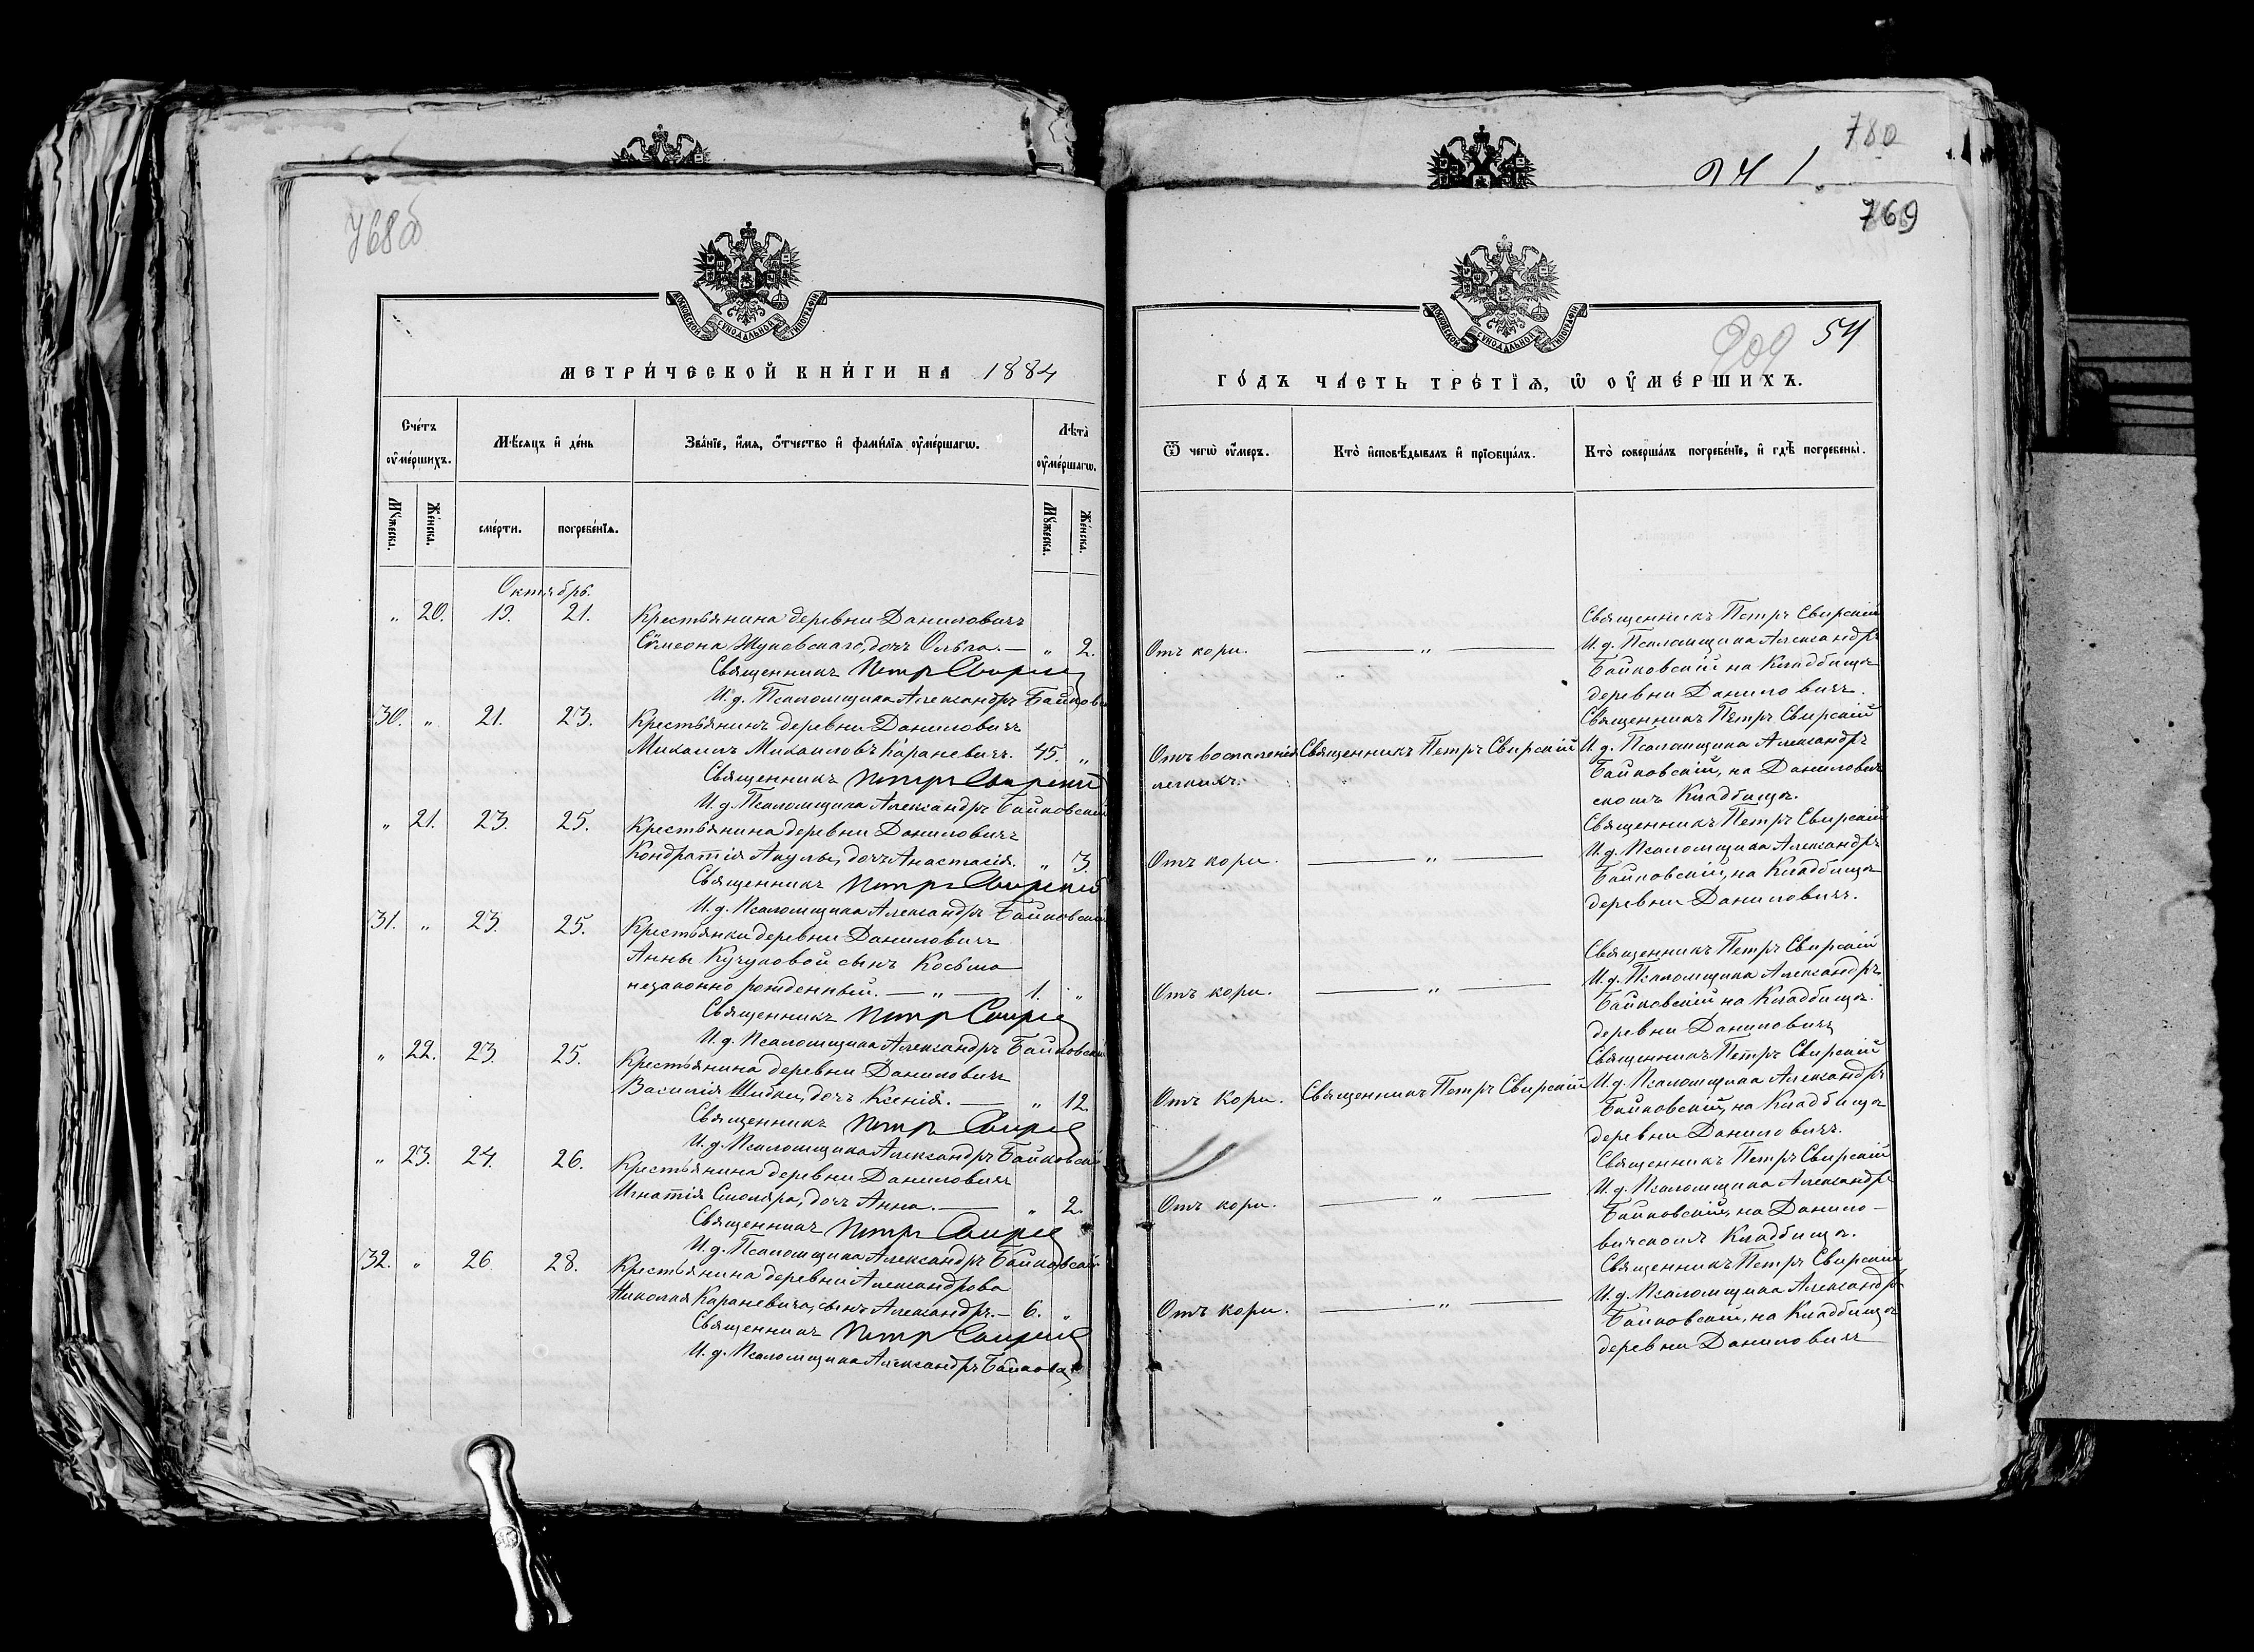 780
241
768б
769
МОСКОВСКОЙ СѴНОДАЛЬНОЙ ТИПОГРАФІИ
МОСКОВСКОЙ СѴНОДАЛЬНОЙ ТИПОГРАФІИ
909 54
МЕТРИ́ЧЕСКОЙ КНИ́ГИ НА 1884
ГО́ДЪ ЧА́СТЬ ТРЕ́ТІѦ, Ѡ ОУ҆МЕ́РШИХЪ.
Сче́тъ оу҆ме́ршихъ.
Мѣ́сяцъ и҆ де́нь
Зва́нїе, и҆́мѧ, ѻ҆́тчество и҆ фами́лїѧ оу҆ме́ршагѡ.
Лѣ́та оу҆ме́ршагѡ.
Ѿ чегѡ̀ оу҆́меръ.
Кто̀ и҆сповѣ́дывалъ и҆ прїобща́лъ.
Кто̀ соверша́лъ погребе́нїе, и҆ гдѣ̀ погребены̀.
Мꙋ́жеска.
Же́нска.
сме́рти.
погребе́нїѧ.
Мꙋ́жеска.
Же́нска.
Октябрь.
„ 20. 19. 21. Крестьянина деревни Даниловичъ
Сѵмеона Жуковскаго, дочь Ольга. — „ 2.
Священникъ Петръ Свирскій
И. д. Псаломщика Александръ Байковскій
Отъ кори.
— „ —
Священникъ Петръ Свирскій
И. д. Псаломщика Александръ
Байковскій на Кладбищѣ
деревни Даниловичъ.
30. „ 21. 23. Крестьянинъ деревни Даниловичъ
Михаилъ Михаиловъ Караневичъ. 45. „
Священникъ Петръ Свирскій
И. д. Псаломщика Александръ Байковскій
Отъ воспаленія
легкихъ.
Священникъ Петръ Свирскій
Священникъ Петръ Свирскій
И. д. Псаломщика Александръ
Байковскій, на Данилович
скомъ Кладбищѣ.
„ 21. 23. 25. Крестьянина деревни Даниловичъ
Кондратія Акулы, дочь Анастасія. „ 3.
Священникъ Петръ Свирскій
И. д. Псаломщика Александръ Байковскій
Отъ кори.
— „ —
Священникъ Петръ Свирскій
И. д. Псаломщика Александръ
Байковскій, на Кладбищѣ
деревни Даниловичъ.
31. „ 23. 25. Крестьянки деревни Даниловичъ
Анны Кучуковой сынъ Косьма
незаконно рожденный. — „ — 1. „
Священникъ Петръ Свирскій
И. д. Псаломщика Александръ Байковскій
Отъ кори.
— „ —
Священникъ Петръ Свирскій
И. д. Псаломщика Александръ
Байковскій на Кладбищѣ
деревни Даниловичъ
„ 22. 23. 25. Крестьянина деревни Даниловичъ
Василія Шибки, дочь Ксенія. — „ 12.
Священникъ Петръ Свирскій
И. д. Псаломщика Александръ Байковскій
Отъ кори.
Священникъ Петръ Свирскій
Священникъ Петръ Свирскій
И. д. Псаломщика Александръ
Байковскій, на Кладбищѣ
деревни Даниловичъ.
„ 23. 24. 26. Крестьянина деревни Даниловичъ
Игнатія Смоляра, дочь Анна. — „ 2.
Священникъ Петръ Свирскій
И. д. Псаломщика Александръ Байковскій
Отъ кори.
— „ —
Священникъ Петръ Свирскій
И. д. Псаломщика Александръ
Байковскій, на Данило-
вичскомъ Кладбищѣ.
32. „ 26. 28. Крестьянина деревни Александрова
Николая Караневича, сынъ Александръ. — 6. „
Священникъ Петръ Свирскій
И. д. Псаломщика Александръ Байковскій
Отъ кори.
— „ —
Священникъ Петръ Свирскій
И. д. Псаломщика Александръ
Байковскій, на Кладбищѣ
деревни Даниловичъ